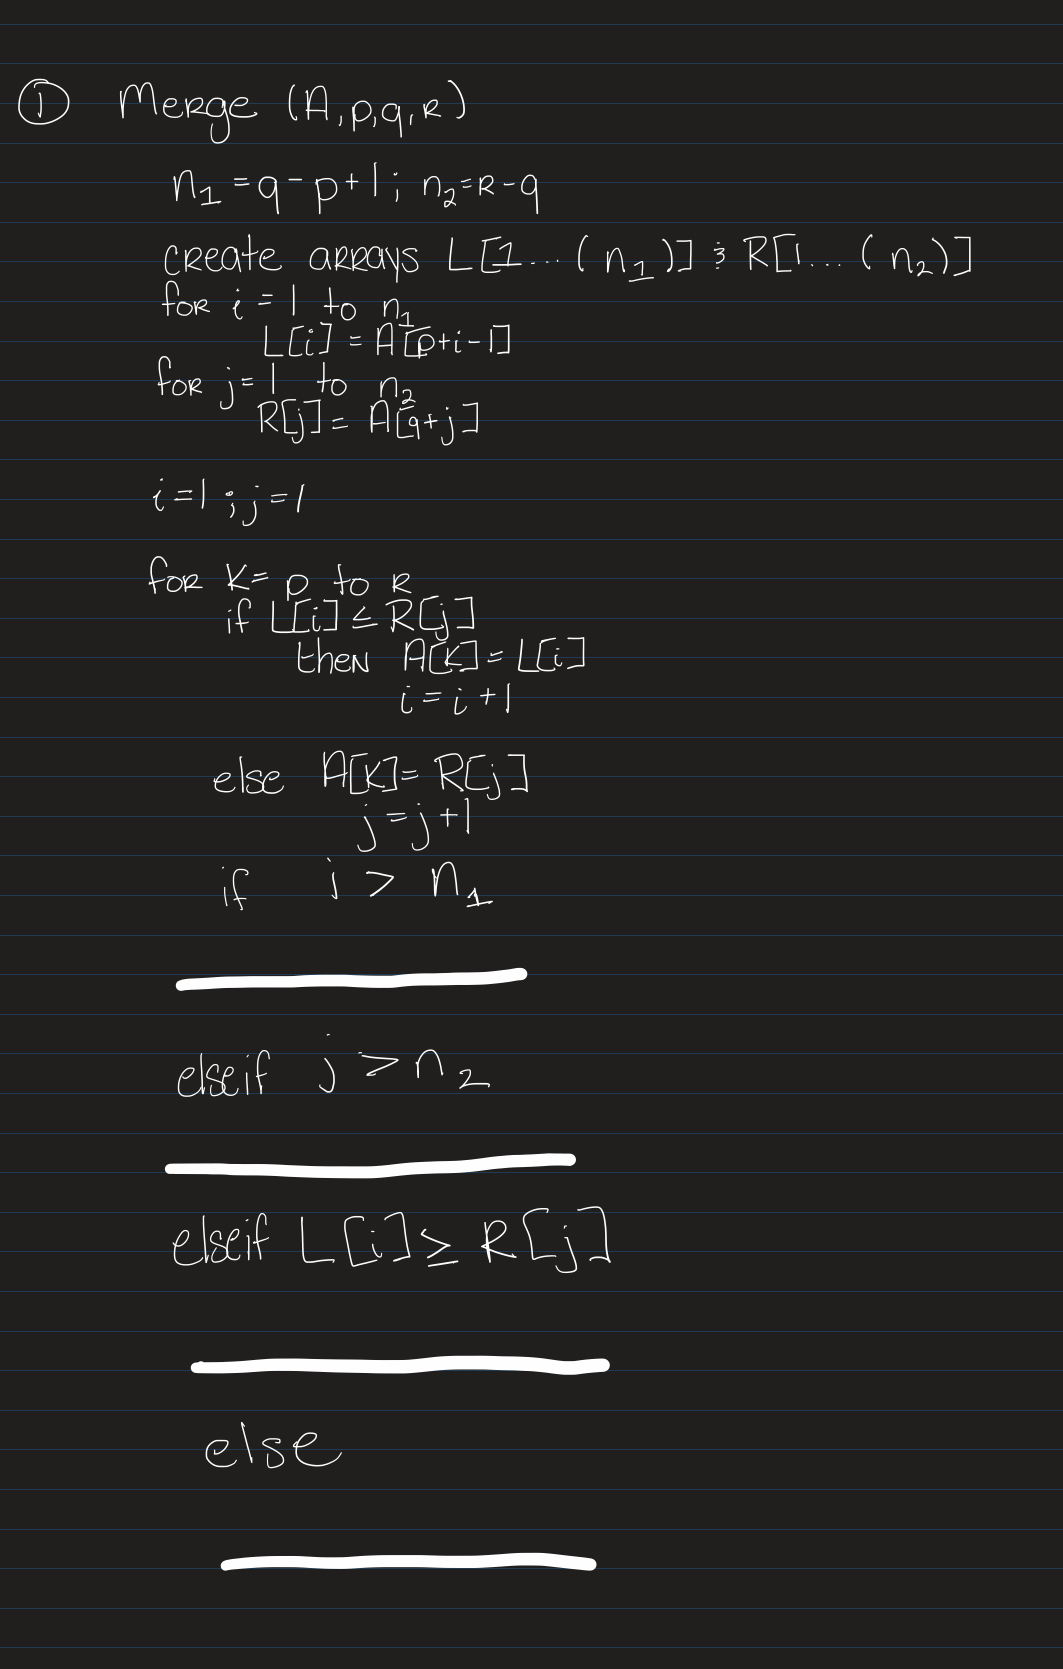 ① Merge (A,p,q,R)
n₁ = q-p+1; n₂=R-q
create arrays L[1...(n₁)] & R[1...(n₂)]
for i = 1 to n₁
L[i] = A[p+i-1]
for j=1 to n₂
R[j] = A[q+j]
i=1 ; j=1
for K= p to R
if L[i] ≤ R[j]
then A[K] = L[i]
i = i +1
else A[K]= R[j]
j = j +1
if i > n₁
elseif j > n₂
elseif L[i] ≥ R[j]
else